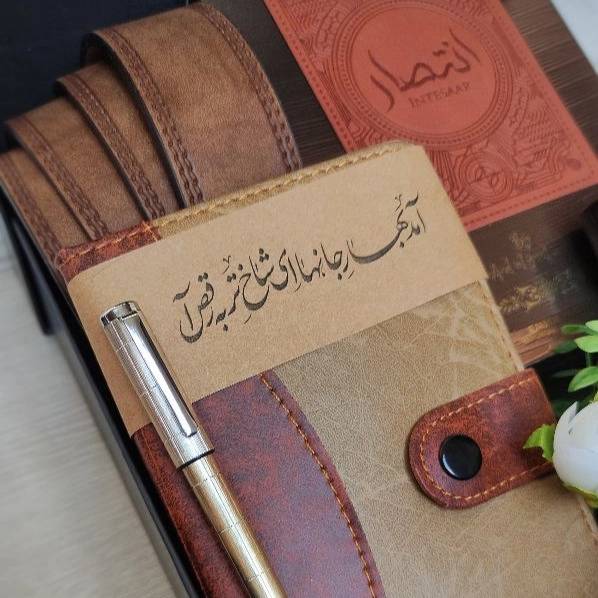 انتصار
INTESAAR
آمد بهار جانها ای شاخ تر به رقص آ